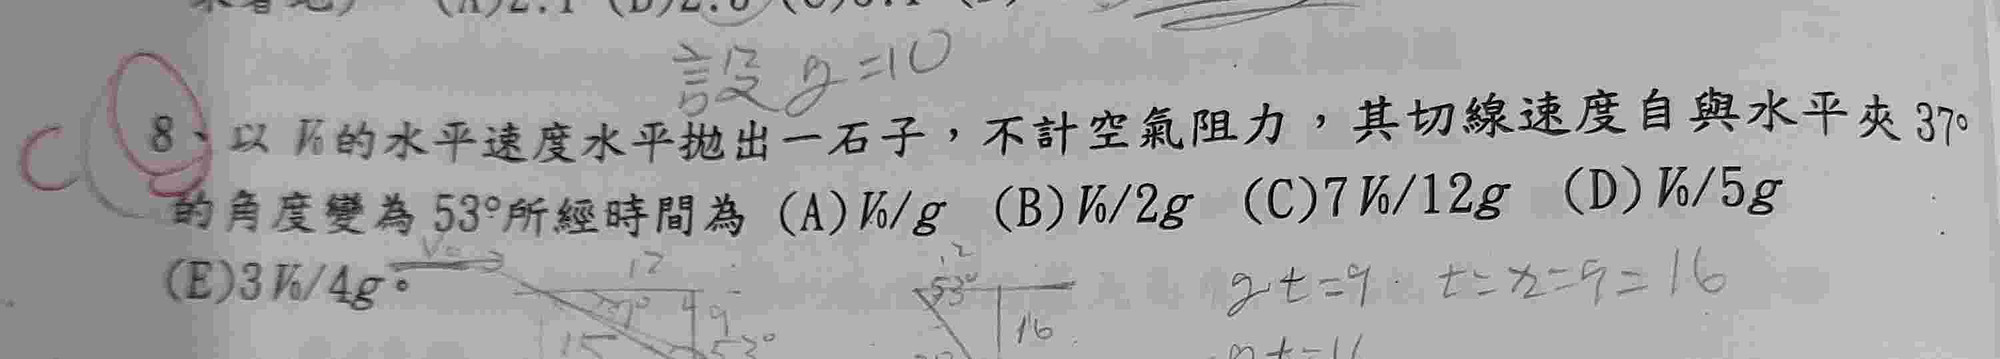 設 g=10
C
8、以 V₀ 的水平速度水平拋出一石子，不計空氣阻力，其切線速度自與水平夾 37°
的角度變為 53°所經時間為 (A)V₀/g (B)V₀/2g (C)7V₀/12g (D)V₀/5g
(E)3V₀/4g。
V₀ 12 12
37° 9 53° 16 gt=9 t=x=9=16
15 53°